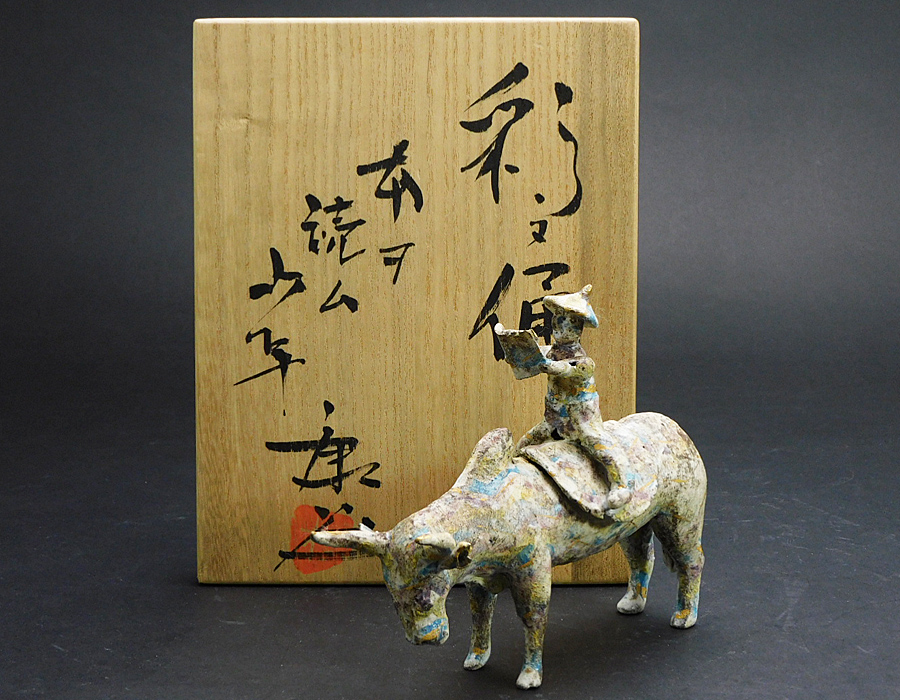 彩文俑
本ヲ
読ム
少年
康